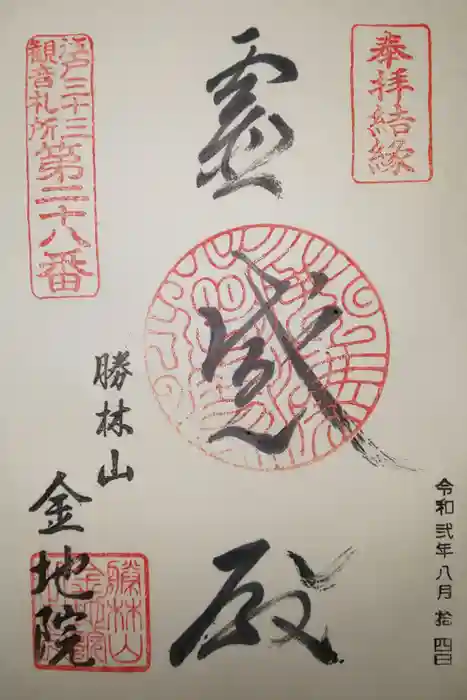 奉拝結縁
霊感殿
江戸三十三
観音札所
第二十八番
勝林山
金地院
勝林山
金地院
令和弐年八月拾四日